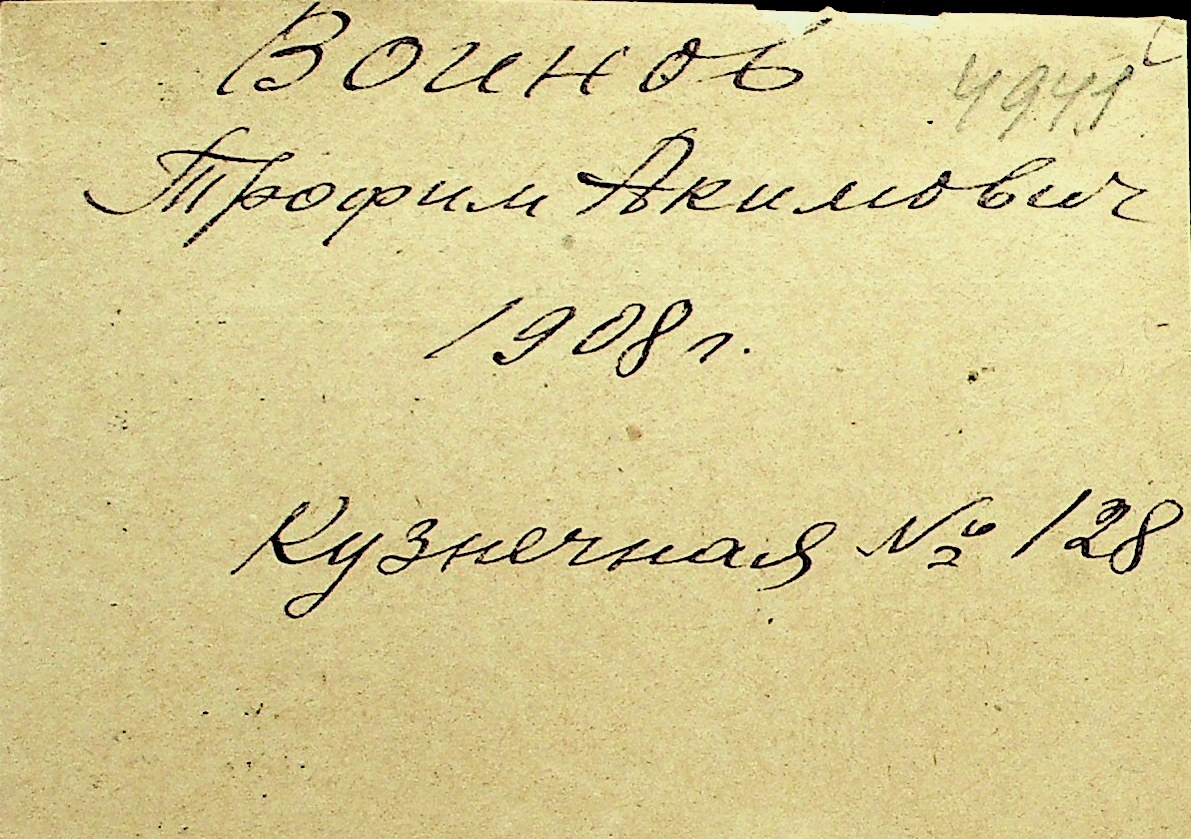 Воинов
4941
Трофим Акимович
1908 г.
Кузнечная № 128